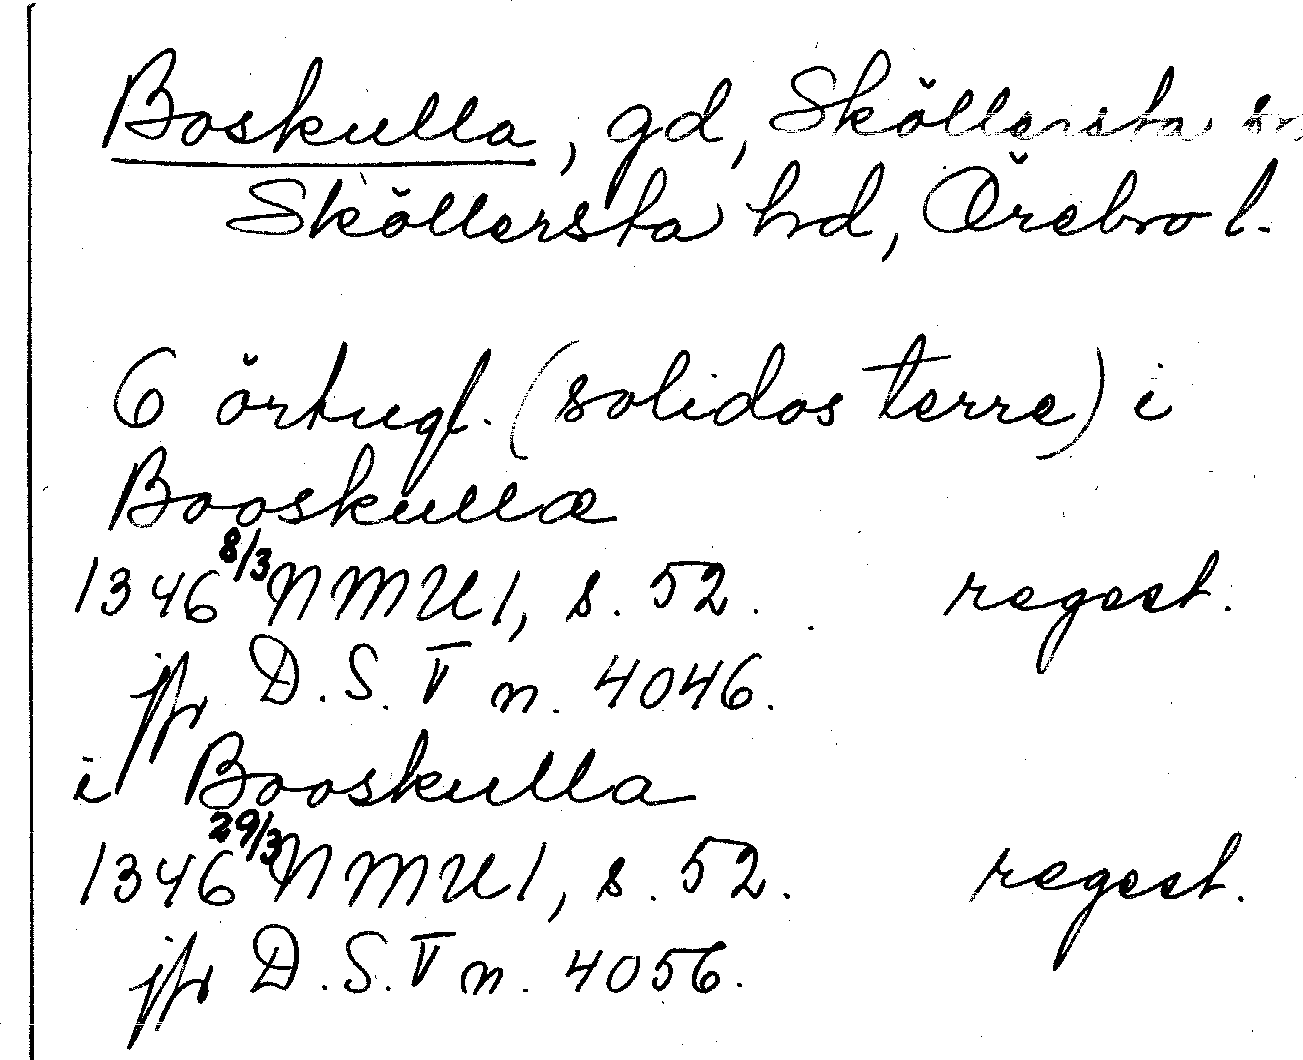 Boskulla, gd, Sköllersta sn,
Sköllersta hd, Örebro l.
6 örtugl. (solidos terre) i
Booskullæ
1346 8/3 NMU 1, s. 52. regest.
jfr D.S. V n. 4046.
i Booskulla
1346 29/3 NMU 1, s. 52. regest.
jfr D.S. V n. 4056.